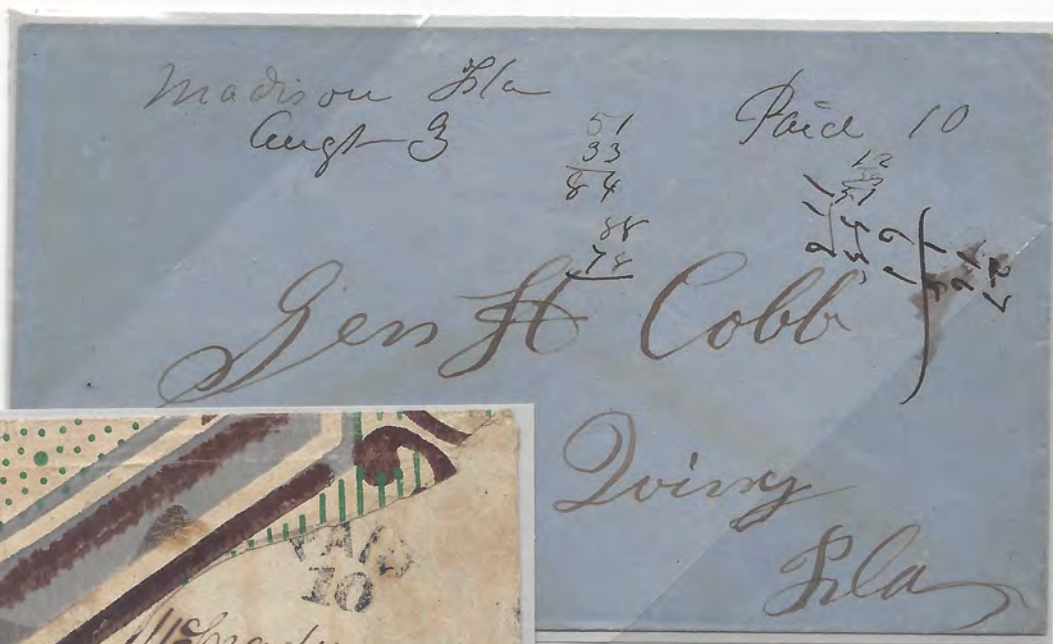 Madison Fla
Augt 3
Paid 10
51
33
84
88
78
12
Gen H Cobb
Quincy
Fla
PAID
10